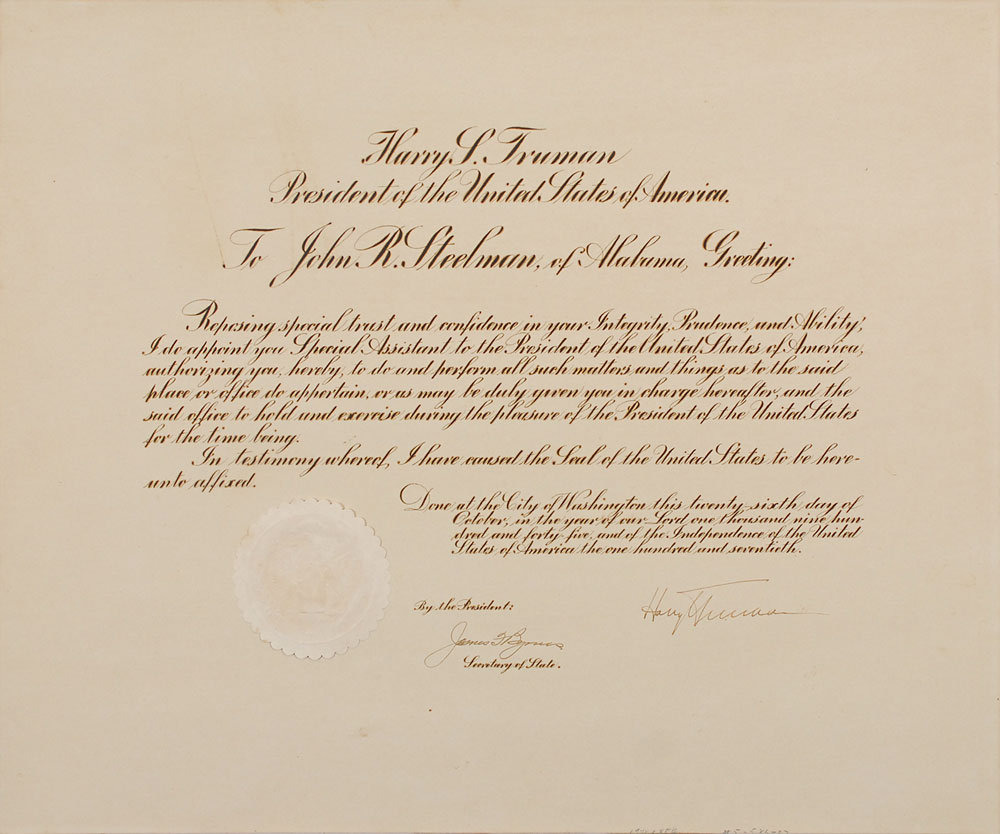 Harry S. Truman
President of the United States of America.
To John R. Steelman, of Alabama, Greeting:
Reposing special trust and confidence in your Integrity, Prudence, and Ability,
I do appoint you Special Assistant to the President of the United States of America,
authorizing you, hereby, to do and perform all such matters and things as to the said
place or office do appertain, or as may be duly given you in charge hereafter, and the
said office to hold and exercise during the pleasure of the President of the United States
for the time being.
In testimony whereof, I have caused the Seal of the United States to be here-
unto affixed.
Done at the City of Washington this twenty-sixth day of
October, in the year of our Lord, one thousand nine hun-
dred and forty-five, and of the Independence of the United
States of America the one hundred and seventieth.
By the President:
Harry S Truman
James F Byrnes
Secretary of State.